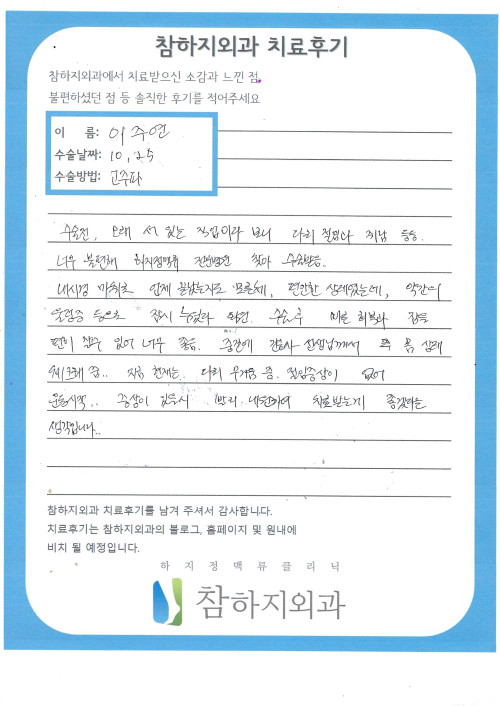 참하지외과 치료후기
참하지외과에서 치료받으신 소감과 느낀 점,
불편하셨던 점 등 솔직한 후기를 적어주세요
이 름: 이주연
수술날짜: 10, 25
수술방법: 고주파
수술전, 오래 서 있는 직업이라 보니 다리 저림과 등등.
너무 불편해 하지정맥류 전문병원 찾아 수술받음.
내시경 마취로 언제 끝났는지도 모르게, 편안한 상태였는데, 약간의
울렁증 등으로 잠시 누웠다 수술후 빠른 회복과
편이 너무 좋음. 중간에 간호사 선생님께서 즉 몸 상태
체크해 줌.. 지금 현재는, 다리 무거움 증, 저림증상이 없어
운동시작.. 증상이 있을시 빨리 내원하여 치료받는게 좋겠다는
생각입니다..
참하지외과 치료후기를 남겨 주셔서 감사합니다.
치료후기는 참하지외과의 블로그, 홈페이지 및 원내에
비치 될 예정입니다.
하지정맥류클리닉
참하지외과